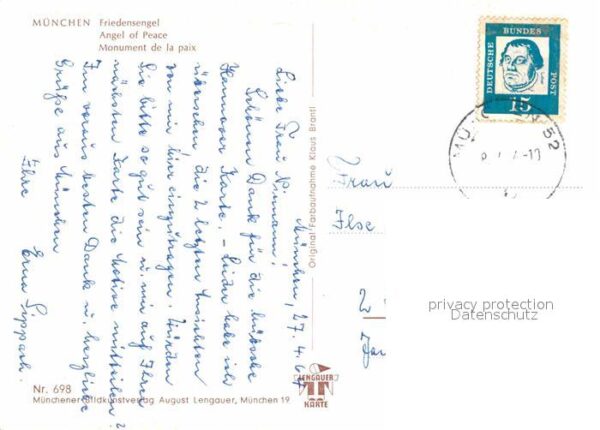 MÜNCHEN Friedensengel
Angel of Peace
Monument de la paix
München, 27.4.64
Liebe Frau Niemann!
Schönen Dank für die hübsche
Hannover Karte. - Leider habe ich
die 2 letzten Ansichten
von mir hier einzutragen. Würden
Sie bitte so gut sein u. mir auf Ihrer
nächsten Karte die Motive mitteilen?
Im voraus besten Dank u. herzliche
Grüße aus München
Ihre
Erna Lippach.
Original Farbaufnahme Klaus Brantl
DEUTSCHE BUNDES POST
15
MÜNCHEN 52
Frau
Ilse
privacy protection
Datenschutz
LENGAUER
KARTE
Nr. 698
Münchener Bildkunstverlag August Lengauer, München 19